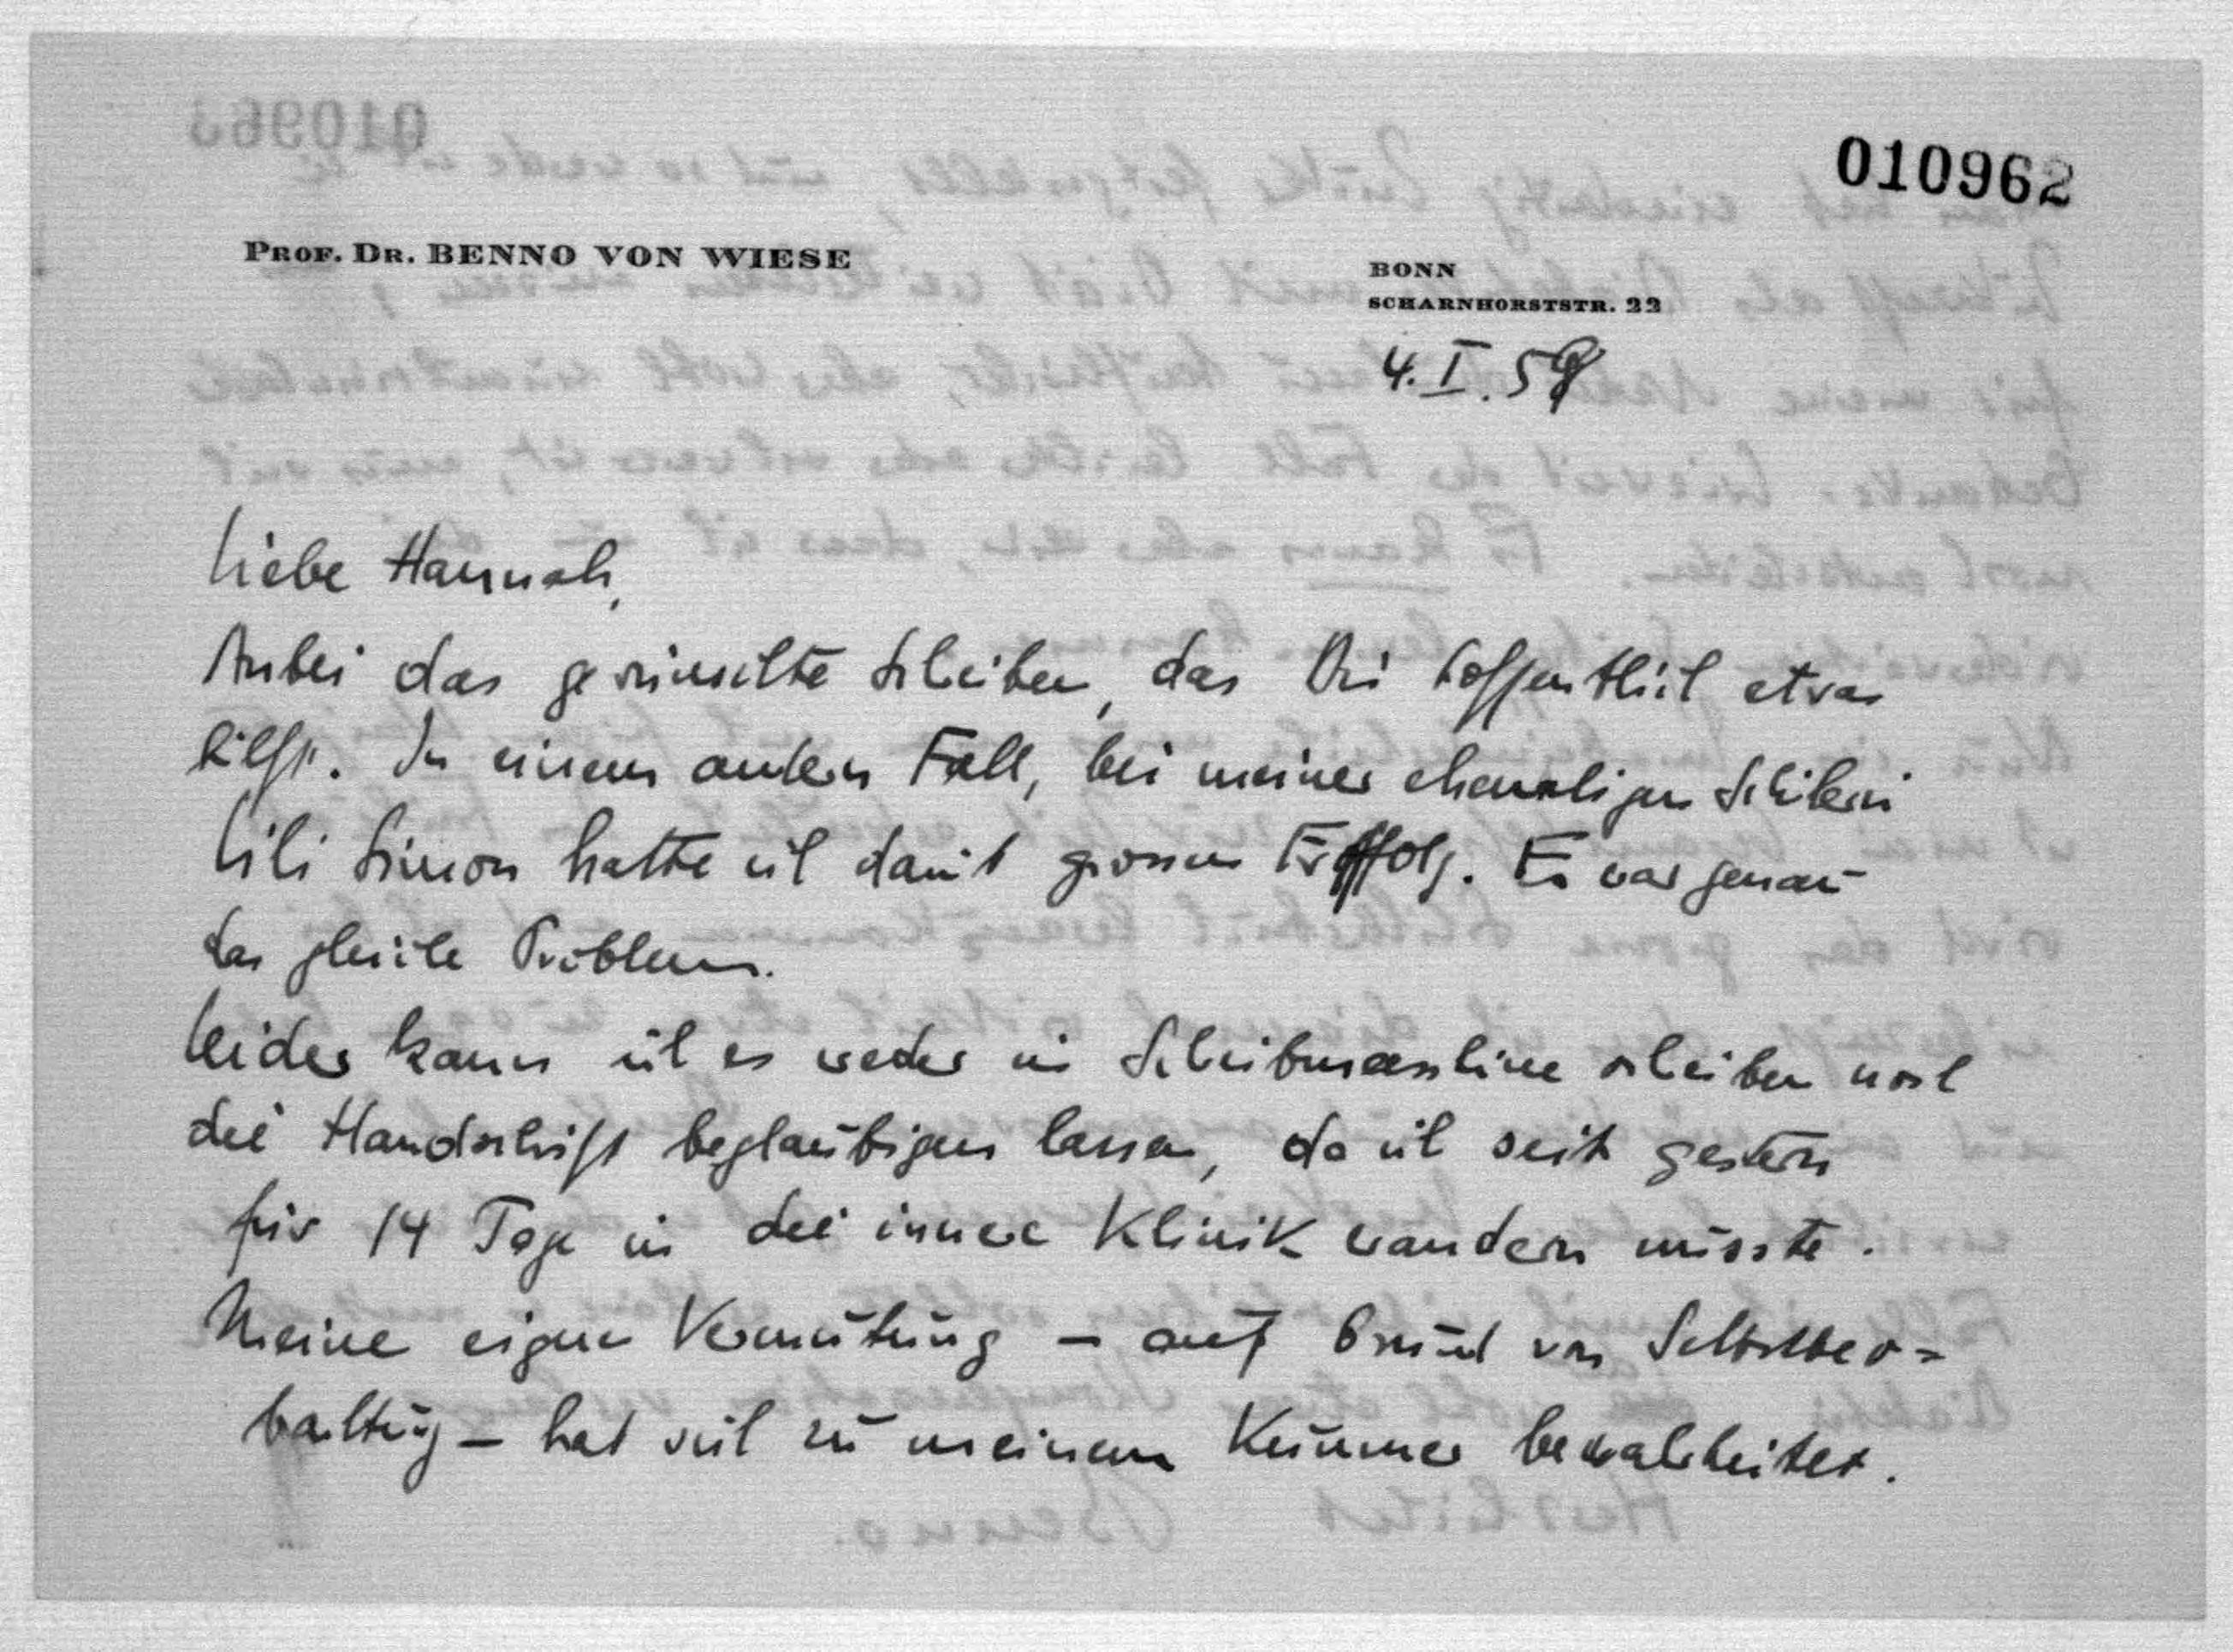 010962
PROF. DR. BENNO VON WIESE
BONN
SCHARNHORSTSTR. 22
4. I. 59
Liebe Hannah,
Anbei das gewünschte Schreiben, das Dir hoffentlich etwas
hilft. In einem andern Fall, bei meiner ehemaligen Schülerin
Lili Simon hatte ich damit grossen Erfolg. Es war genau
das gleiche Problem.
Leider kann ich es weder in Schreibmaschine schreiben noch
die Handschrift beglaubigen lassen, da ich seit gestern
für 14 Tage in die innere Klinik wandern müsste.
Meine eigene Vermutung – auf Grund von Selbstbeo=
bachtung – hat sich zu meinem Kummer bewahrheitet.